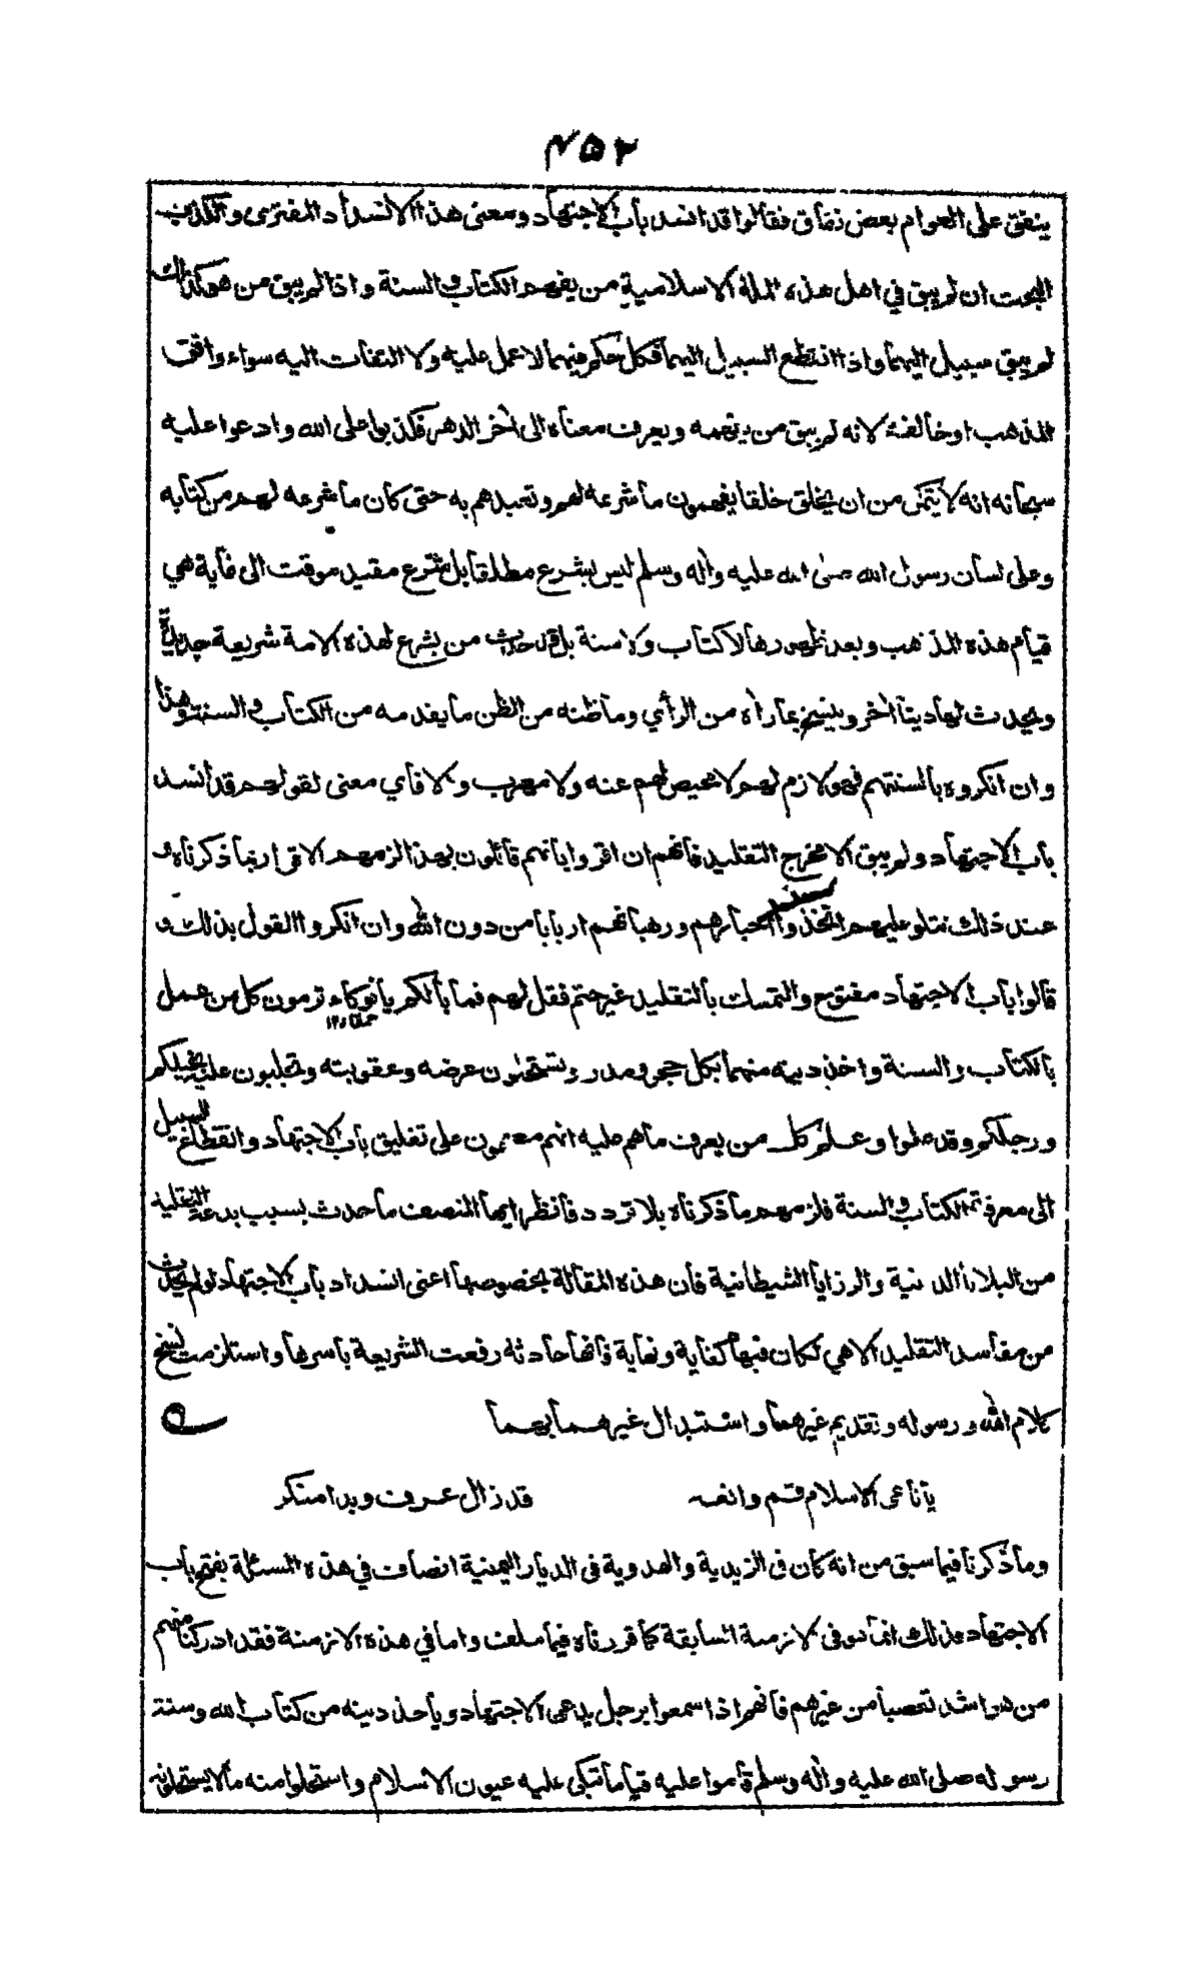 ۴۵۲
ينفق على العوام بعض نفاق فقالوا قد انسد باب الاجتهاد ومعنى هذا الانسداد المفترى والكذب
البحت ان لم يبق في اهل هذه الملة الاسلامية من يفهم الكتاب والسنة واذا لم يبق من هو كذلك
لم يبق سبيل اليهما واذا انقطع السبيل اليهما فكل حكم فيهما لا عمل عليه ولا التفات اليه سواء وافق
المذهب او خالفه لانه لم يبق من يفهمه ويعرف معناه الى اخر الدهر فكذبوا على الله وادعوا عليه
سبحانه انه لا يتمكن من ان يخلق خلقا يفهمون ما شرعه لهم وتعبدهم به حتى كان ما شرعه لهم من كتابه
وعلى لسان رسول الله صلى الله عليه واله وسلم ليس بشرع مطلقا بل شرع مقيد موقت الى غاية هي
قيام هذه المذهب وبعد ظهورها لا كتاب ولا سنة بل قد حدث من يشرع لهذه الامة شريعة جديدة
ويحدث لها دينا اخر وينسخ بما راه من الرأي وما ظنه من الظن ما يقدمه من الكتاب والسنة وهذا
وان انكروه بألسنتهم فهو لازم لهم لا محيص لهم عنه ولا مهرب والا فأي معنى لقولهم قد انسد
باب الاجتهاد ولم يبق الا مخرج التقليد فانهم ان اقروا بأنهم قائلون بهذا لزمهم الاقرار بما ذكرناه و
عند ذلك نتلو عليهم اتخذوا احبارهم ورهبانهم اربابا من دون الله وان انكروا القول بذلك و
قالوا باب الاجتهاد مفتوح والتمسك بالتقليد غير حتم فقل لهم فما بالكم يا نوكاء ترمون كل من عمل
حمقا ۱۲
بالكتاب والسنة واخذ دينه منهما بكل حجر ومدر وتستحلون عرضه وعقوبته وتجلبون عليه بخيلكم
ورجلكم وقد علموا وعلم كل من يعرف ما هم عليه انهم مصممون على تغليق باب الاجتهاد وانقطاع السبيل
الى معرفة الكتاب والسنة فلزمهم ما ذكرناه بلا تردد فانظر ايها المنصف ما حدث بسبب بدعة التقليد
من البلايا الدينية والرزايا الشيطانية فان هذه المقالة بخصوصها اعنى انسداد باب الاجتهاد لو لم يحدث
من مفاسد التقليد الا هي لكان فيها كفاية ونهاية فانها حادثة رفعت الشريعة بأسرها واستلزمت نسخ
كلام الله ورسوله وتقديم غيرهما واستبدال غيرهما بهما
يا ناعى الاسلام قم وانعه     قد زال عرف وبدا منكر
وما ذكرنا فيما سبق من انه كان فى الزيدية والهدوية فى الديار اليمنية انصاف في هذه المسئلة بفتح باب
الاجتهاد فذلك انما هو فى الازمنة السابقة كما قررناه فيما سلف واما في هذه الازمنة فقد ادركنا منهم
من هو اشد تعصبا من غيرهم فانهم اذا سمعوا برجل يدعى الاجتهاد ويأخذ دينه من كتاب الله وسنة
رسوله صلى الله عليه واله وسلم قاموا عليه قياما تبكى عليه عيون الاسلام واستحلوا منه ما لا يستحلونه